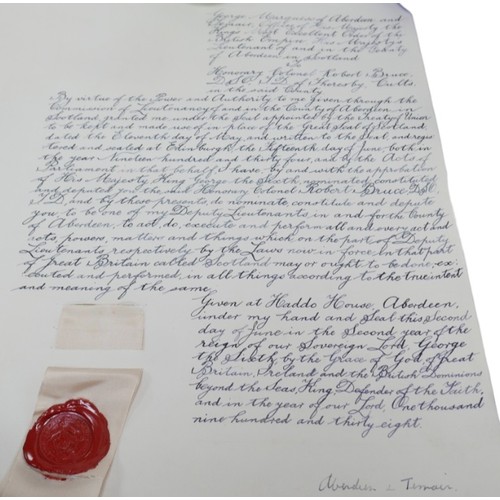 George Marquess of Aberdeen and
Temair, Officer of the Most
Excellent Order of the
British Empire His Majesty's
Lieutenant of and in the County
of Aberdeen in Scotland
To
Honorary Colonel Robert Bruce,
D.S.O., T.D. of Thoresby, Cults,
in the said County
By virtue of the Power and Authority to me Given through the
Commission of Lieutenancy of and in the County of Aberdeen in
Scotland, granted me, under the Seal appointed by the Treaty of Union
to be kept and made use of in place of the Great Seal of Scotland,
dated the Eleventh day of May, and written to the Seal and regis
tered and sealed at Edinburgh, the Fifteenth day of June both in
the year Nineteen hundred and thirty four, and by the Acts of
Parliament in that behalf, I have, by and with the approbation
of His Majesty King George the Sixth, nominated, constituted
and deputed you the said Honorary Colonel Robert Bruce D.S.O.
T.D. and by these presents, do nominate, constitute and depute
you to be one of my Deputy Lieutenants in and for the County
of Aberdeen, to act, do, execute and perform all and every act and
acts, powers, matters and things which on the part of Deputy
Lieutenants respectively by the Laws now in force in that part
of Great Britain called Scotland may or ought to be done, exe
cuted and performed, in all things according to the true intent
and meaning of the same.
Given at Haddo House, Aberdeen,
under my hand and Seal this Second
day of June in the Second year of the
reign of our Sovereign Lord, George
the Sixth by the Grace of God, of Great
Britain, Ireland and the British Dominions
beyond the Seas, King, Defender of the Faith,
and in the year of our Lord, One thousand
nine hundred and thirty eight.
Aberdeen & Temair.